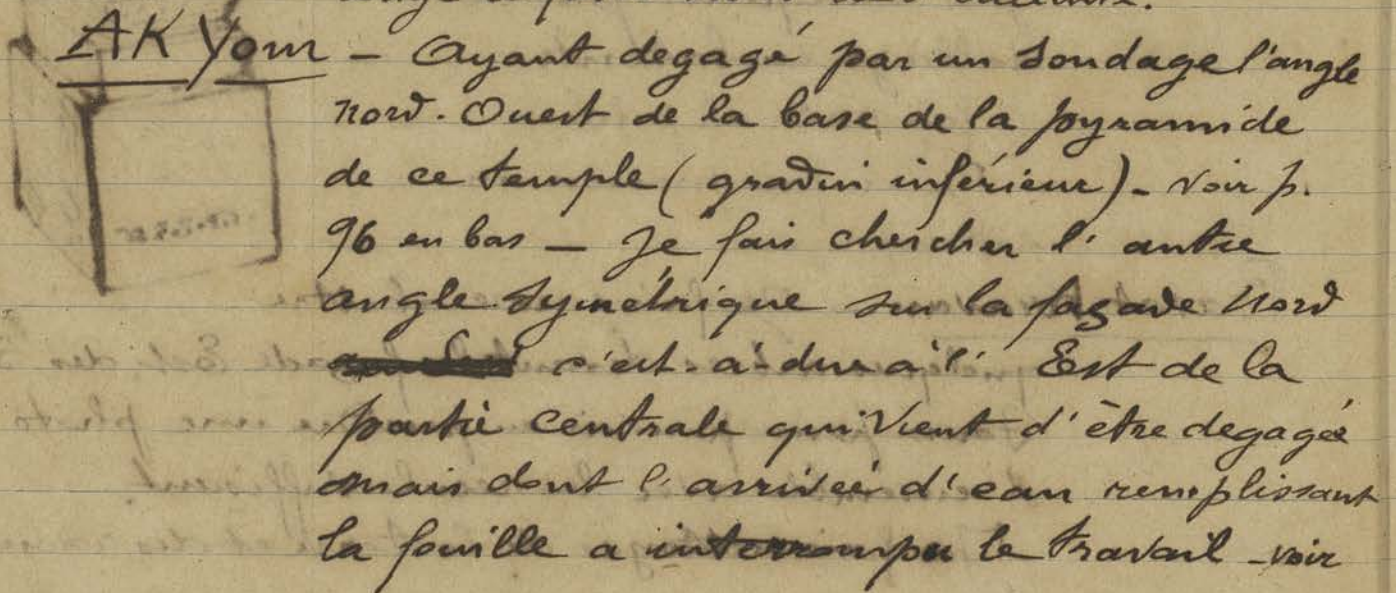 AK Yom – Ayant degagé par un sondage l'angle
nord. Ouest de la base de la pyramide
de ce temple (gradin inférieur) – voir p.
96 en bas — je fais chercher l'autre
angle symétrique sur la façade Nord
c'est-à-dire à l'Est de la
partie centrale qui vient d'être degagée
mais dont l'arrivée d'eau remplissant
la fouille a interrompu le travail – voir